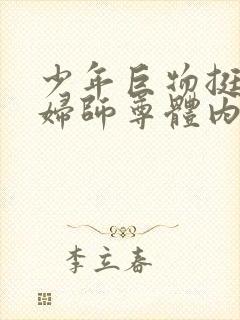 少年巨物挺
婦師尊體內
李立春